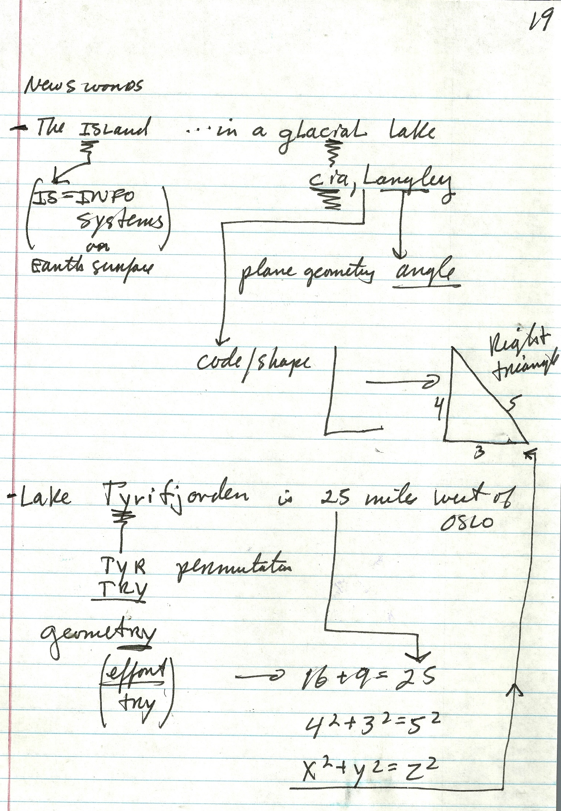 19
News words
- The ISLand ... in a glacial Lake
cia, Langley
(IS = INFO
Systems
on
Earth surface)
plane geometry angle
code/shape
Right
triangle
4
5
3
- Lake Tyrifjorden is 25 miles west of
OSLO
TYR permutation
TRY
geometry
(effort/
try)
16 + 9 = 25
4² + 3² = 5²
x² + y² = z²